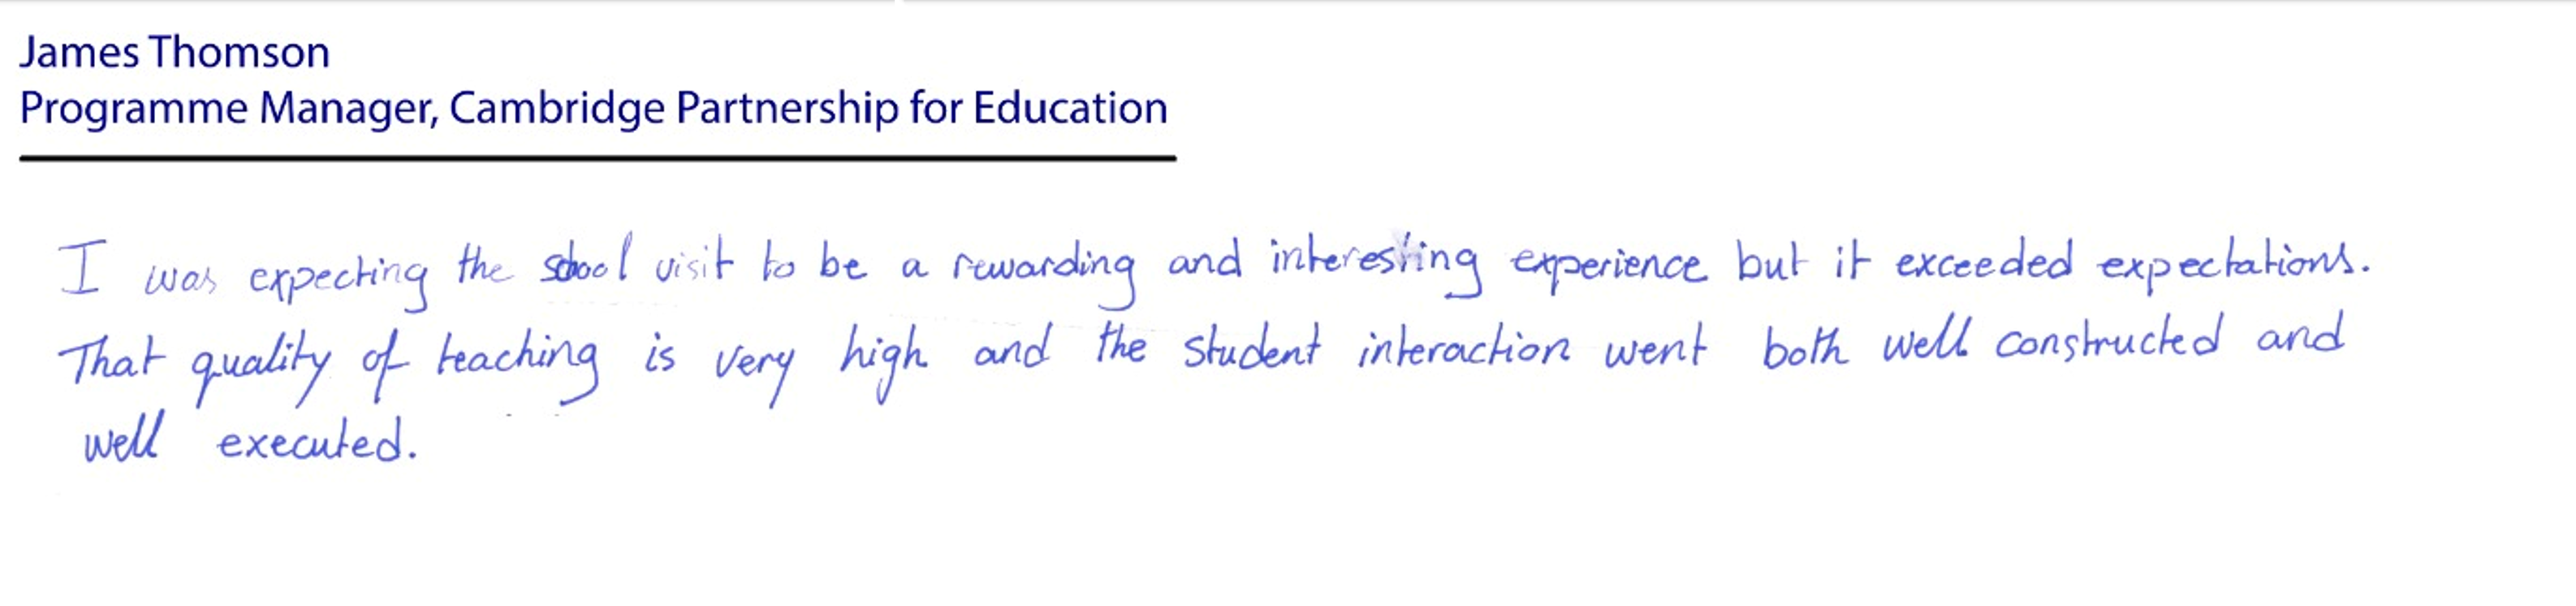 James Thomson
Programme Manager, Cambridge Partnership for Education
I was expecting the school visit to be a rewarding and interesting experience but it exceeded expectations.
That quality of teaching is very high and the student interaction went both well constructed and
well executed.